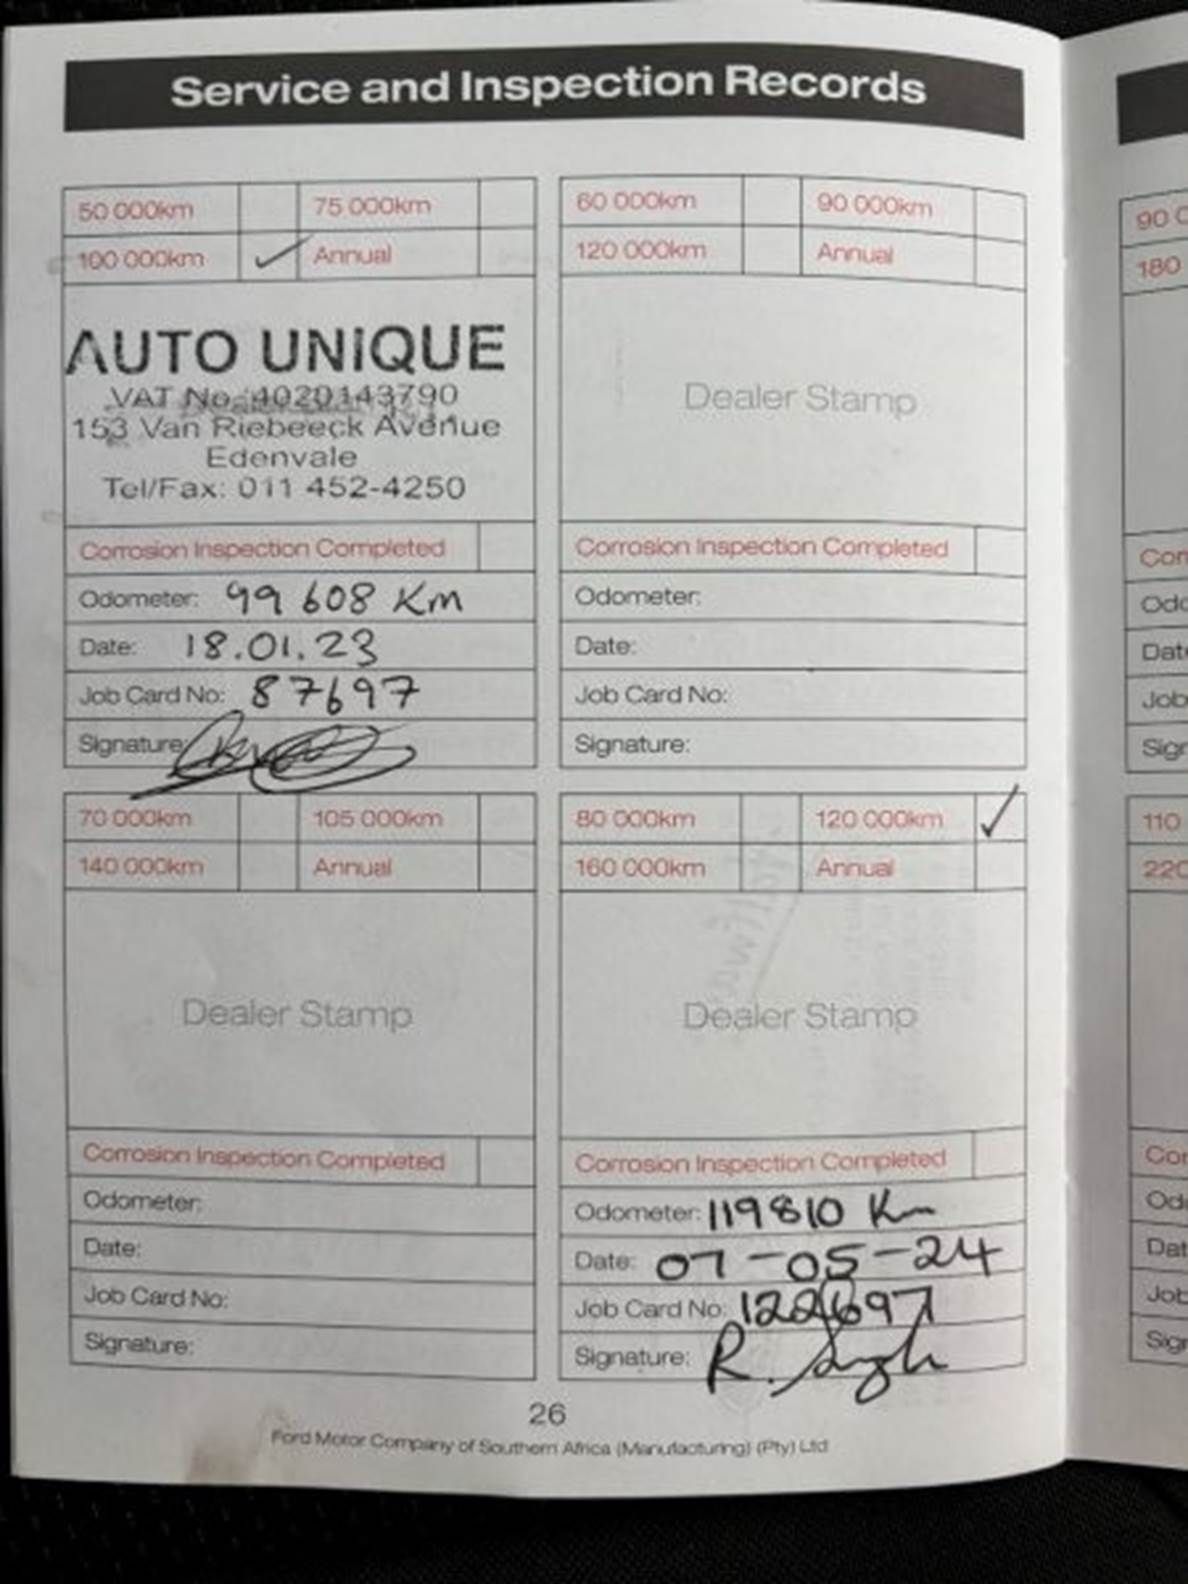 Service and Inspection Records
50 000km 75 000km
100 000km ✓ Annual
AUTO UNIQUE
VAT No. 4020143790
153 Van Riebeeck Avenue
Edenvale
Tel/Fax: 011 452-4250
Corrosion Inspection Completed
Odometer: 99 608 Km
Date: 18.01.23
Job Card No: 87697
Signature:
60 000km 90 000km
120 000km Annual
Dealer Stamp
Corrosion Inspection Completed
Odometer:
Date:
Job Card No:
Signature:
70 000km 105 000km
140 000km Annual
Dealer Stamp
Corrosion Inspection Completed
Odometer:
Date:
Job Card No:
Signature:
80 000km 120 000km ✓
160 000km Annual
Dealer Stamp
Corrosion Inspection Completed
Odometer: 119810 Km
Date: 07-05-24
Job Card No: 122697
Signature: R. Singh
26
Ford Motor Company of Southern Africa (Manufacturing) (Pty) Ltd
180
110